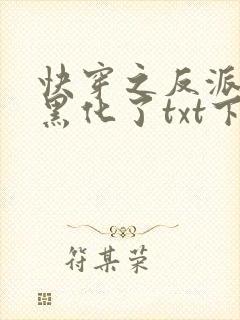 快穿之反派
黑化了txt下
符某荣